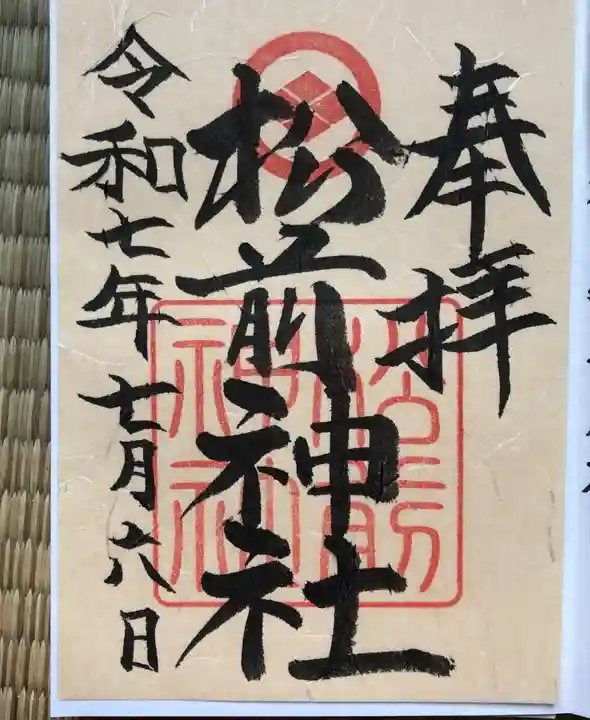 奉拝
松前神社
令和七年七月六日
松前
神社